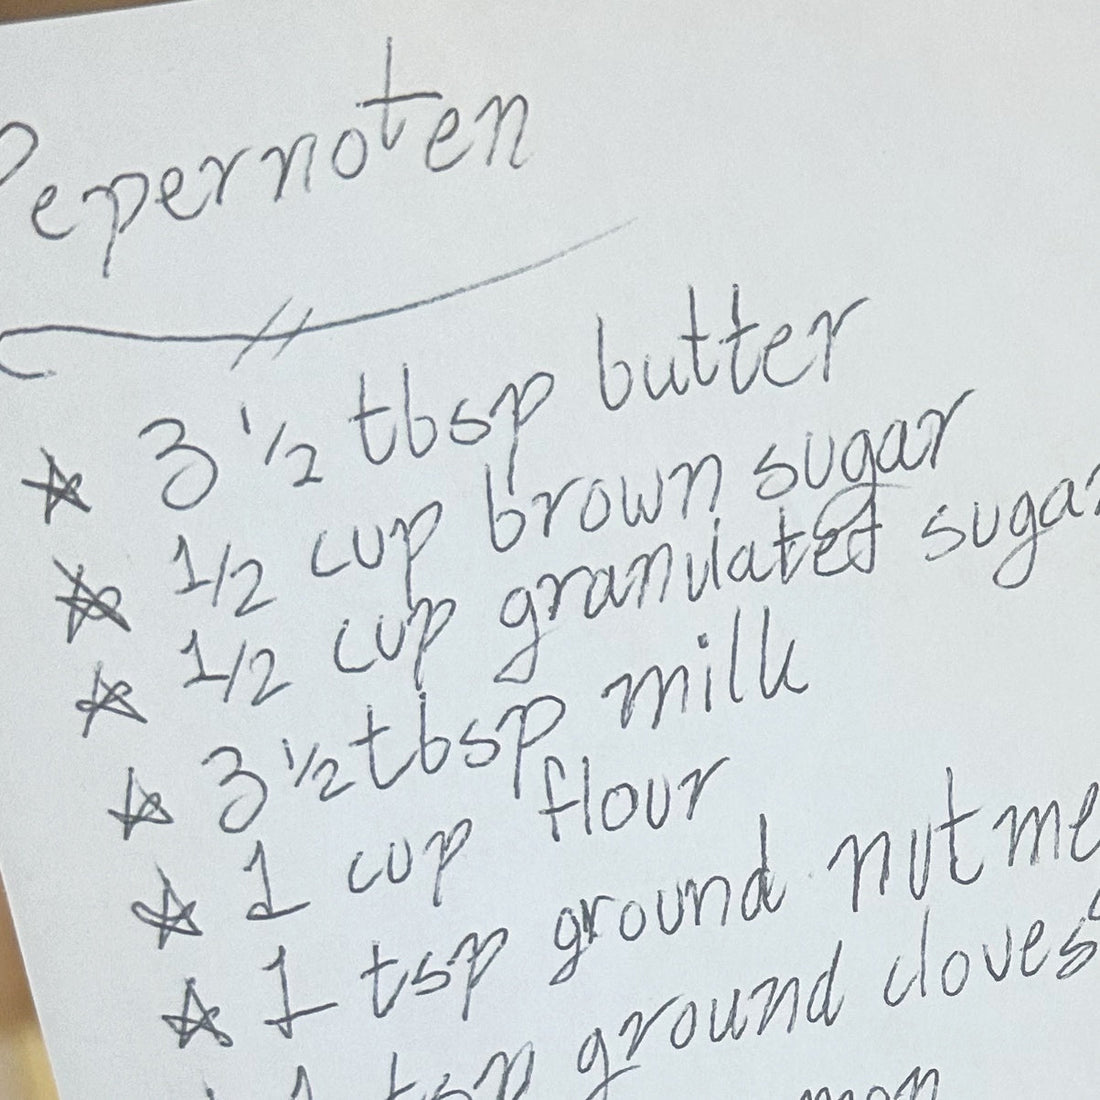 Pepernoten
☆ 3 1/2 tbsp butter
☆ 1/2 cup brown sugar
☆ 1/2 cup granulated sugar
☆ 3 1/2 tbsp milk
☆ 1 cup flour
☆ 1 tsp ground nutme
1 tsp ground cloves